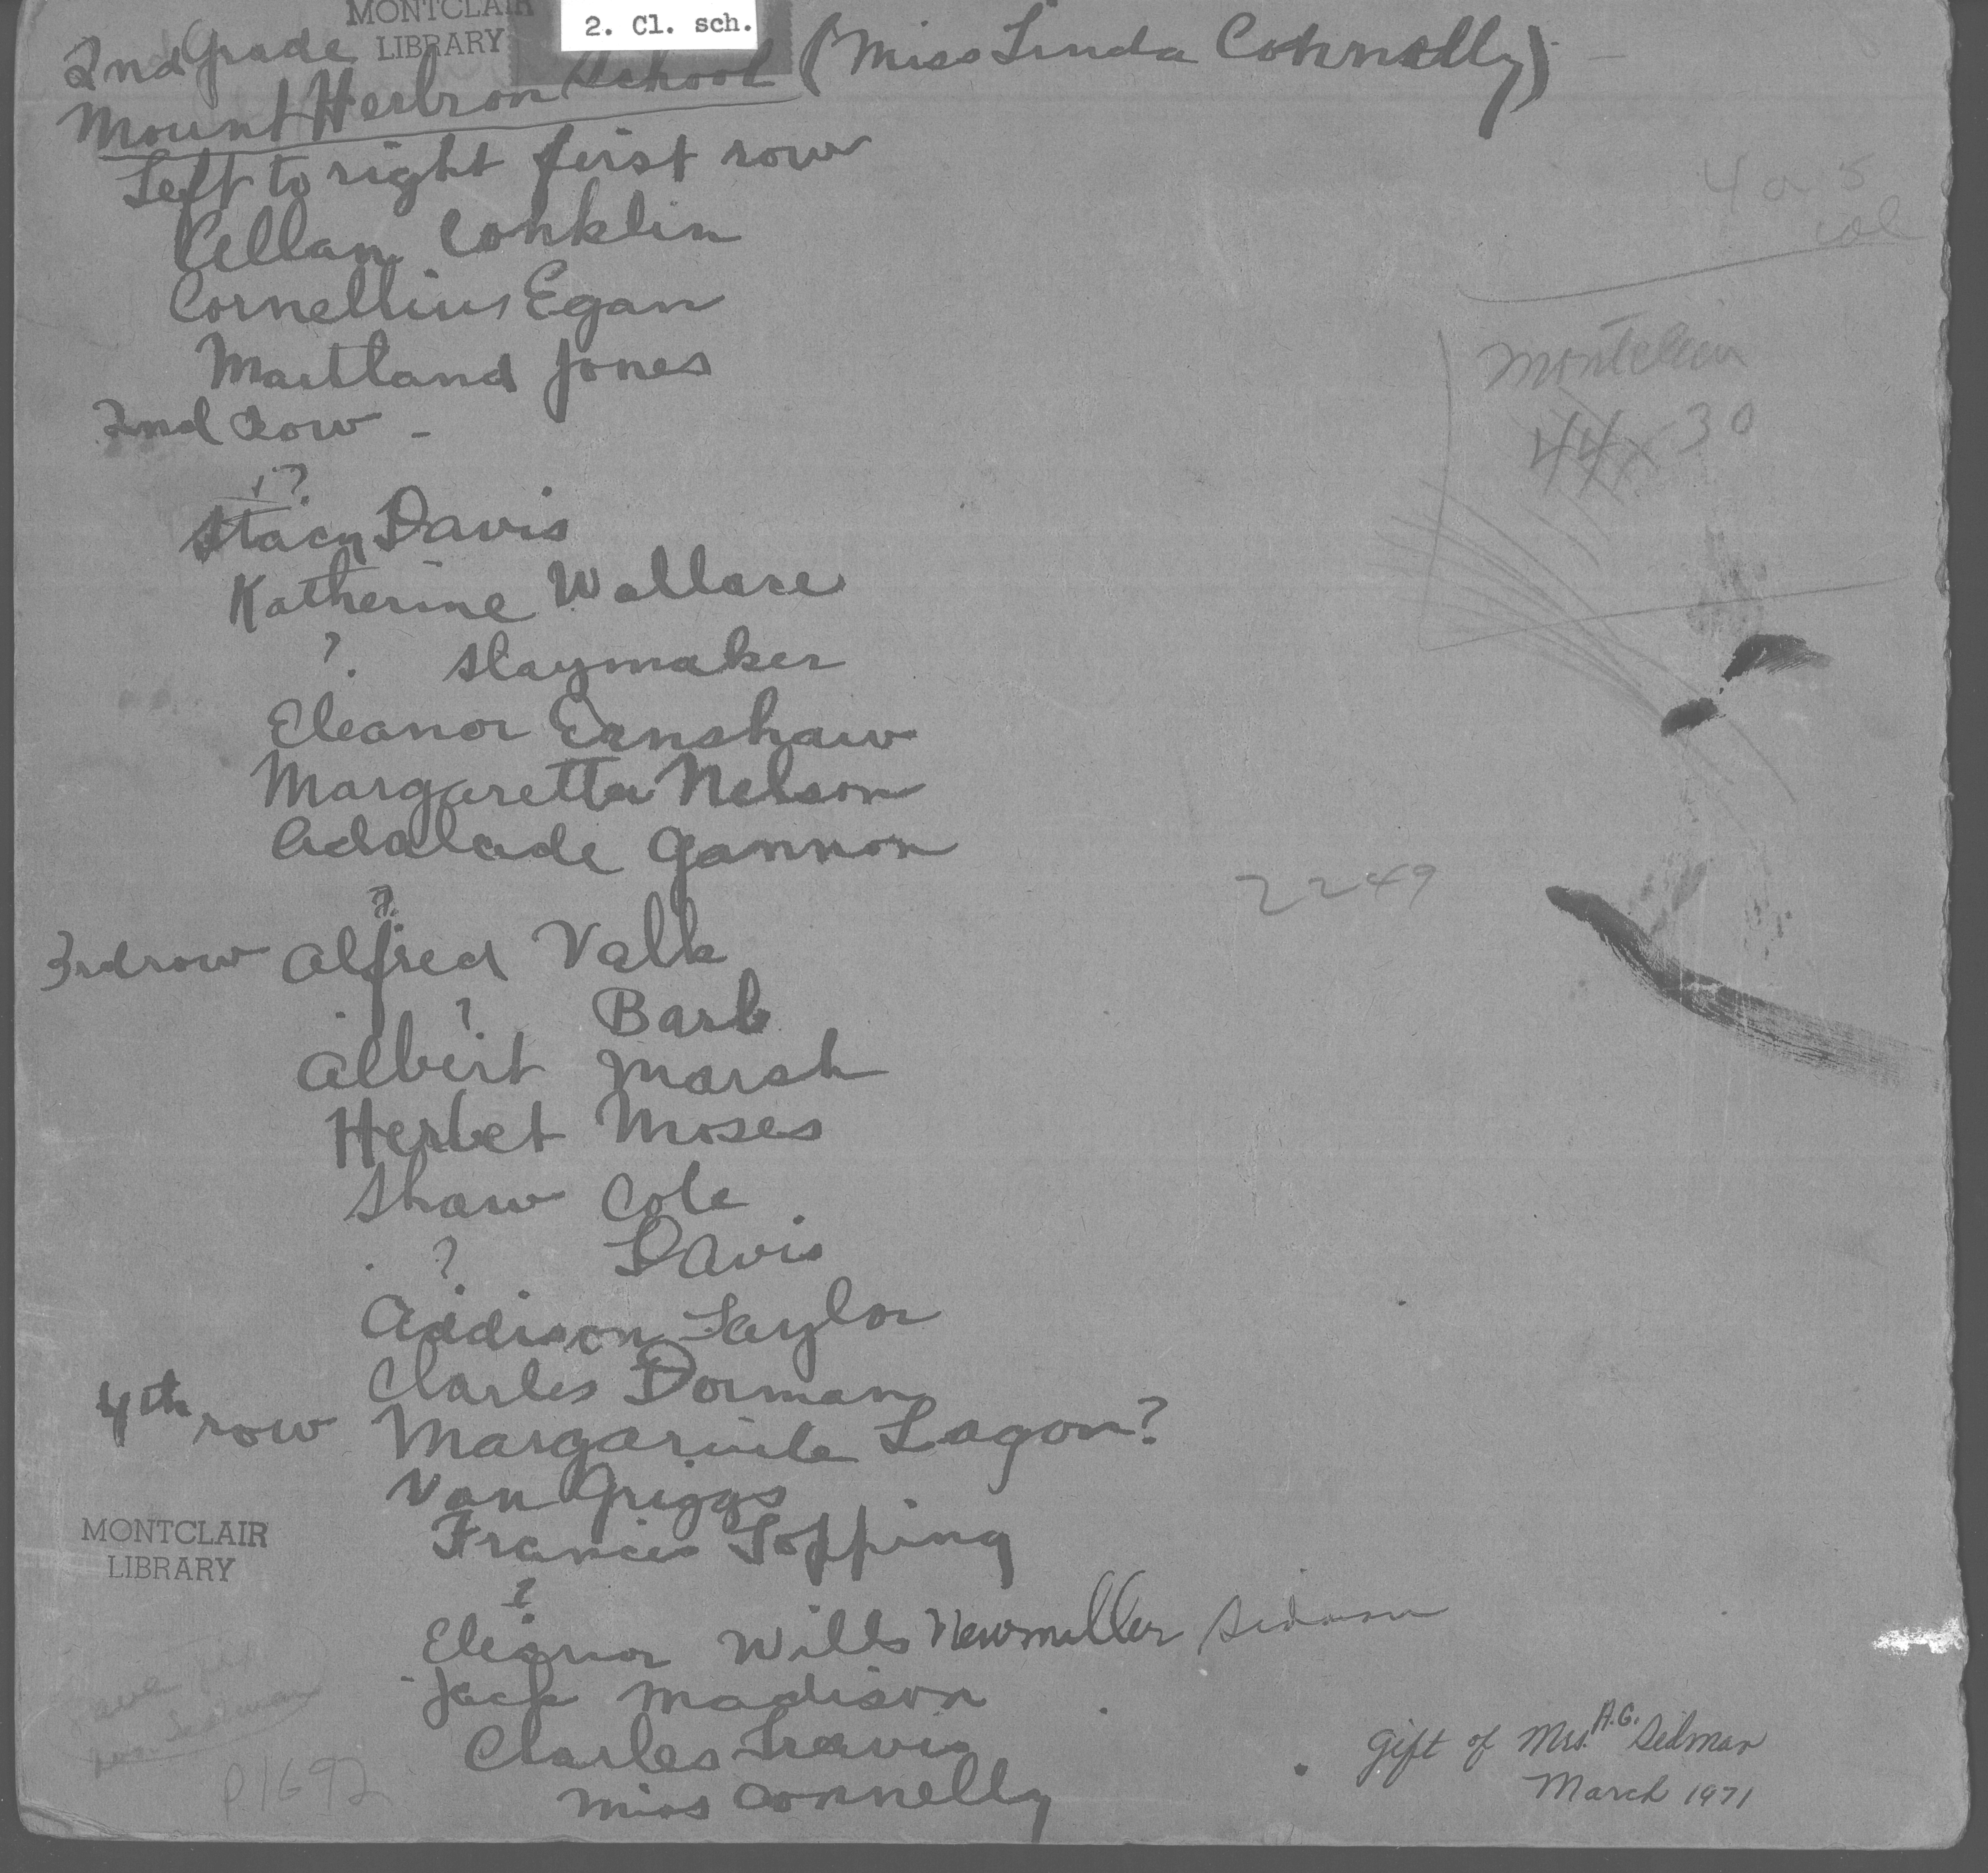 MONTCLAIR
LIBRARY
2. Cl. sch.
2nd Grade
Mount Hebron School (Miss Linda Connolly)
Left to right first row
Allan Conklin
Cornellius Egan
Maitland Jones
2nd Row -
?
Stacy Davis
Katherine Wallace
? Slaymaker
Eleanor Ernshaw
Margaretta Nelson
Adalaide Gannon
?
3rd row Alfred Valk
? Barb
Albert Marsh
Herbet Moses
Shaw Cole
? Davis
Addison Taylor
Charles Dorman
4th row Margaruite Lagon?
Van Griggs
Francis Topping
?
Eleanor Wills Newmiller Sidman
Jack Madison
Charles Travis
Miss Connelly
Montclair
44 x 30
2249
MONTCLAIR
LIBRARY
P1692
Gift of Mrs. A.G. Sidman
March 1971